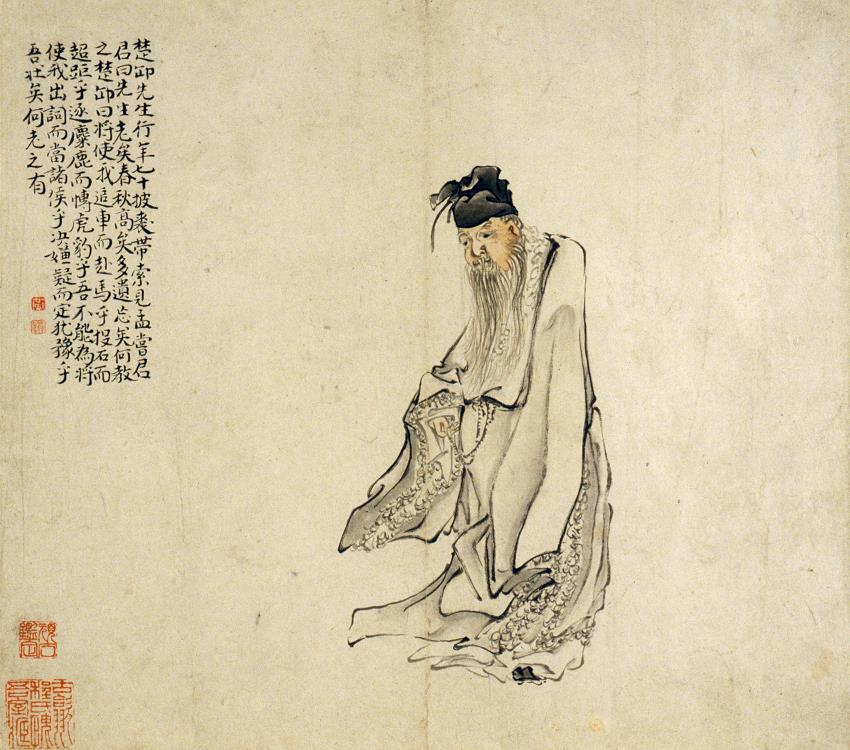 楚邱先生行年七十披裘帶索見孟嘗君
君曰先生老矣春秋高矣多遺忘矣何教
之楚邱曰將使我追車而赴馬乎投石而
超距乎逐麋鹿而慱虎豹乎吾不能為將
使我出詞而當諸侯乎决嫌疑而定犹豫乎
吾壯矣何老之有